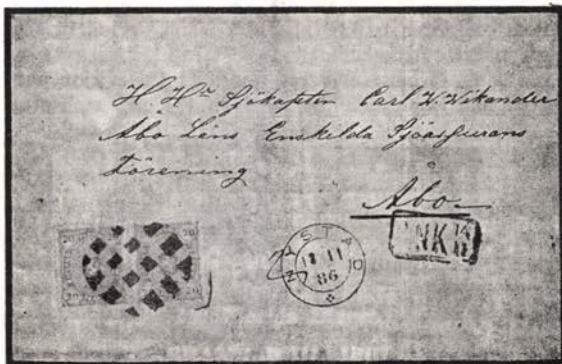 H. Hr Sjökapten Carl W. Wikander
Åbo Läns Enskilda Sjöassurans
Förening
Åbo
20 20
STAD
11 11
86
ANK
14 11